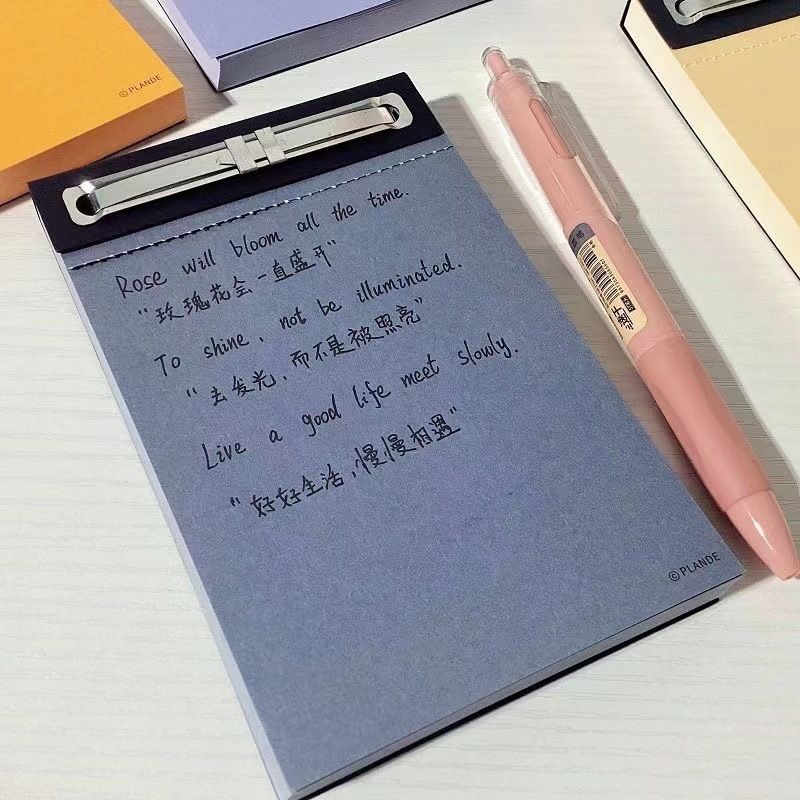 ©PLANDE
Rose will bloom all the time.
"玫瑰花会一直盛开"
To shine, not be illuminated.
"去发光，而不是被照亮"
Live a good life meet slowly.
"好好生活，慢慢相遇"
©PLANDE
速干